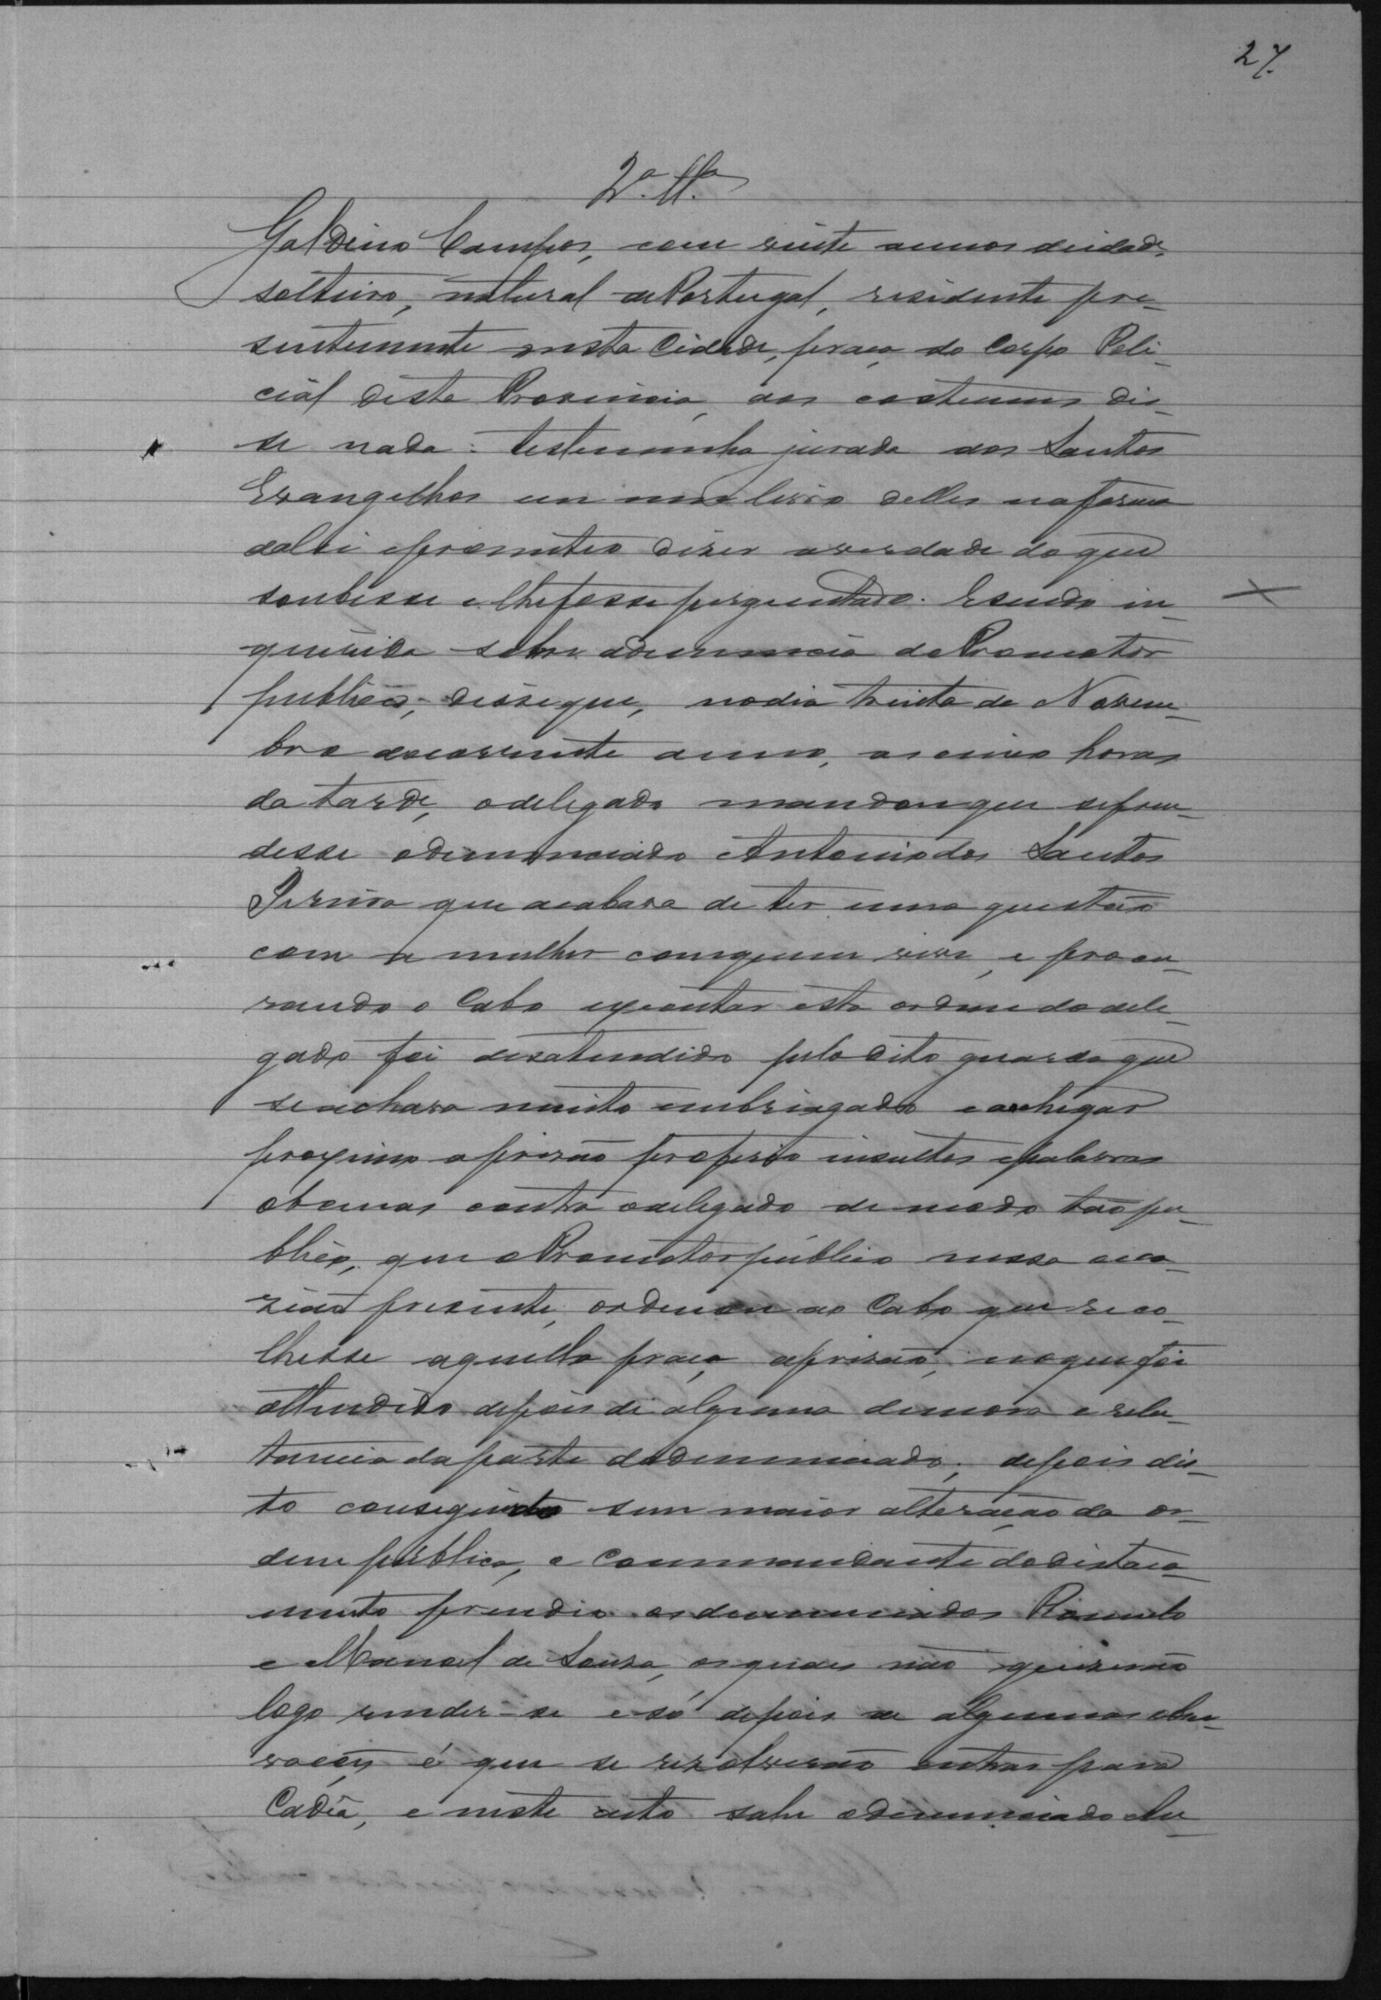 27.
2ª. Tª.
Galdino Campos, com vinte annos de idade,
solteiro, natural de Portugal, residente pre-
sentemente nesta Cidade, praça do Corpo Poli-
cial desta Provincia, aos costumes dis-
se nada: testemunha jurada aos Santos
Evangelhos em um livro delles na forma
da lei e prometteo dizer a verdade do que
soubesse e lhe fosse perguntado. E sendo in-
querida sobre a denuncia do Promotor
publico; disse que, no dia trinta de Novem-
bro do corrente anno, as cinco horas
da tarde, o delegado mandou que se pren-
desse o denunciado Antonio dos Santos
Pereira que acabara de ter uma questão
com a mulher com quem vive, e procu-
rando o Cabo executar esta ordem do dele-
gado foi desatendido pelo dito guarda que
se achava muito embriagado e ao chegar
proximo a prisão proferio insultos e palavras
obcenas contra o delegado de modo tão pu-
blico, que o Promotor publico nessa occa-
zião presente, ordenou ao Cabo que reco-
lhesse aquella praça a prisão, no que foi
attendido depois de alguma demora e relu-
tancia da parte do denunciado; depois dis-
to conseguido sem maior alteração da or-
dem publica, o Commandante do destaca-
mento prendeo os denunciados Romulo
e Manoel de Souza, os quaes não quizerão
logo render-se e só depois de algumas obser-
vações é que se rezolverão entrar para
Cadêa, e neste acto sabe o denunciado